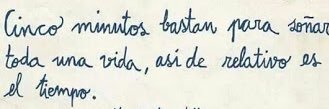 Cinco minutos bastan para soñar
toda una vida, así de relativo es
el tiempo.